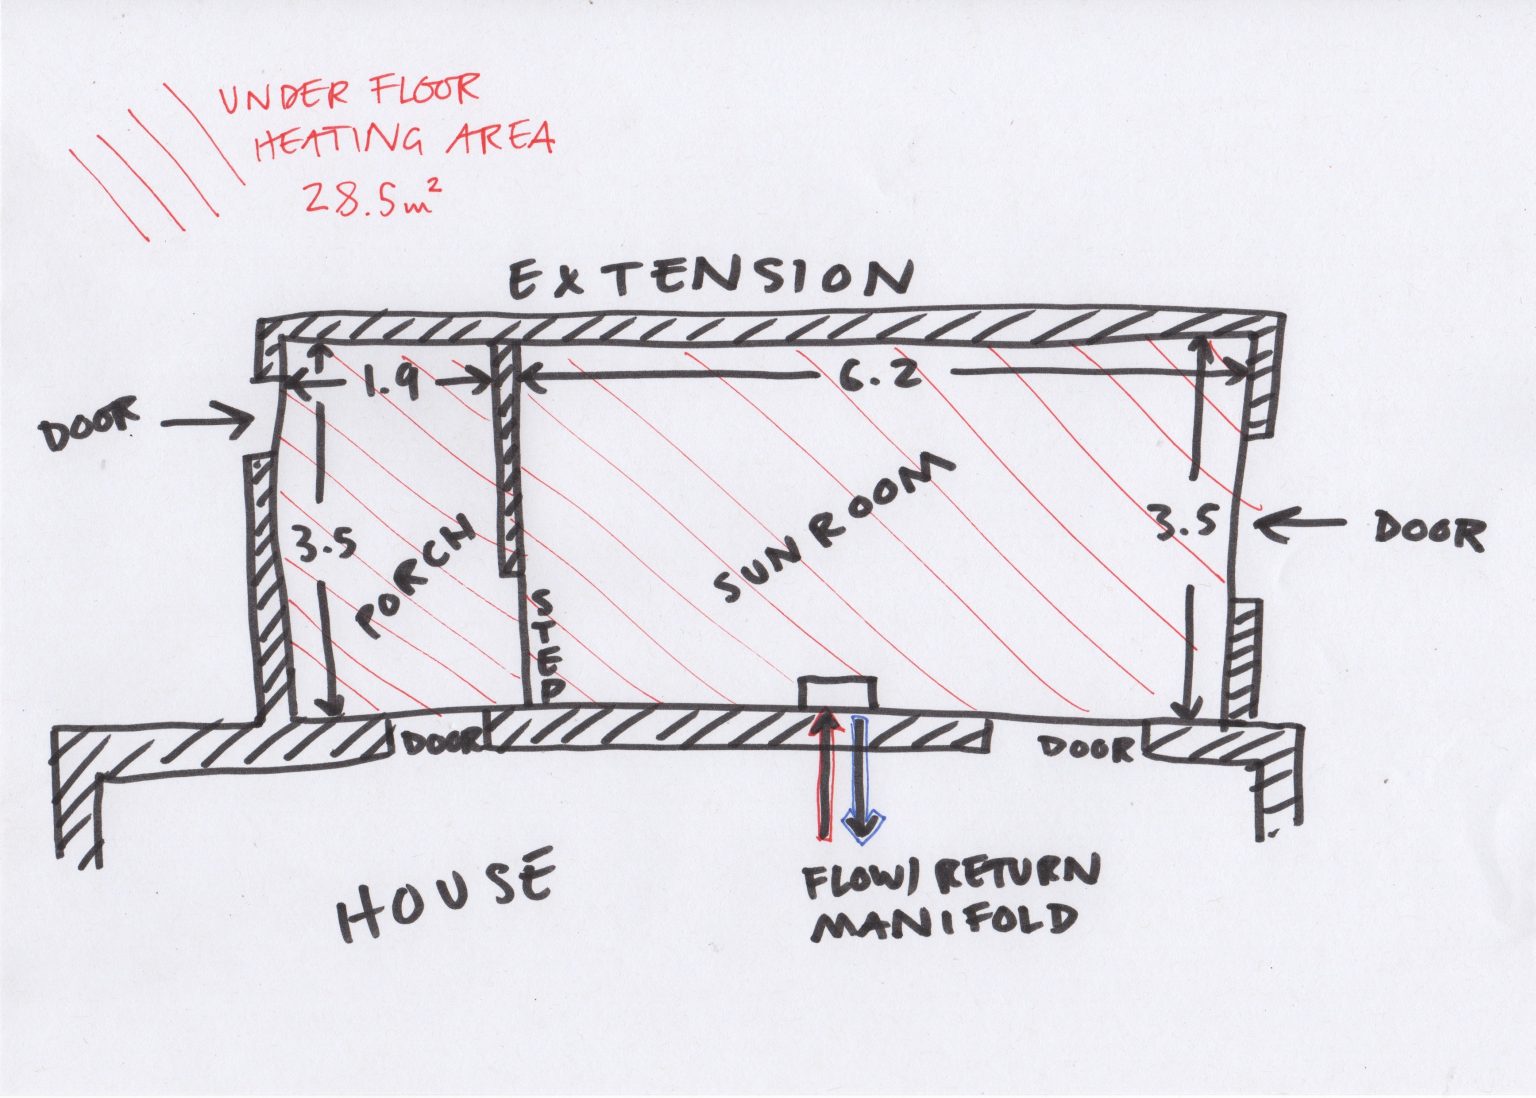 UNDER FLOOR
HEATING AREA
28.5m²
EXTENSION
1.9
6.2
DOOR
3.5
PORCH
STEP
SUN ROOM
3.5
DOOR
DOOR
DOOR
HOUSE
FLOW/RETURN
MANIFOLD